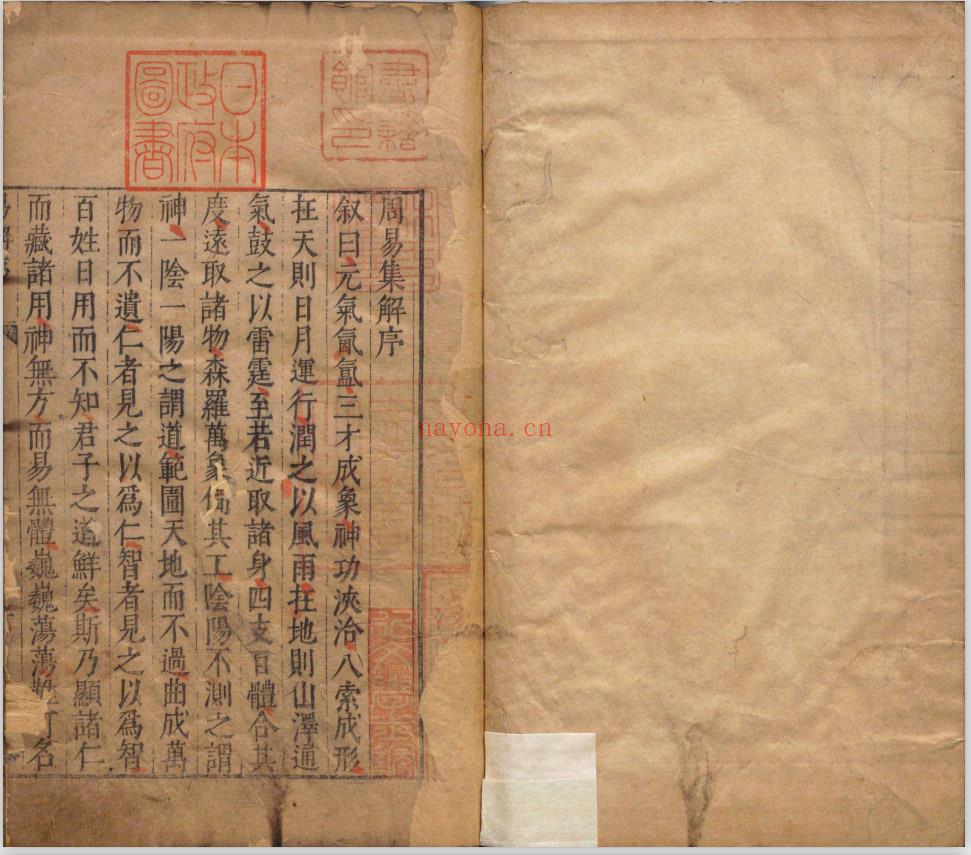 周易集解序
叙曰元氣氤氳三才成象神功浹洽八索成形
在天則日月運行潤之以風雨在地則山澤通
氣鼓之以雷霆至若近取諸身四支百體合其
度遠取諸物森羅萬象備其工陰陽不測之謂
神一陰一陽之謂道範圍天地而不過曲成萬
物而不遺仁者見之以爲仁智者見之以爲智
百姓日用而不知君子之道鮮矣斯乃顯諸仁
而藏諸用神無方而易無體巍巍蕩蕩難可名
日本
政府
圖書
nayona.cn